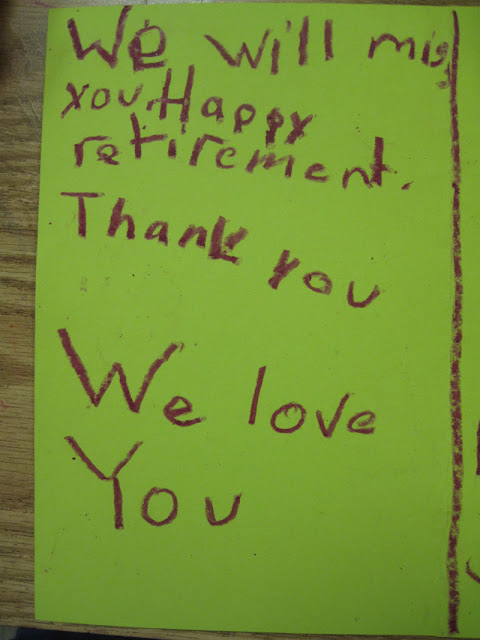 We will miss
you. Happy
retirement.
Thank you
We love
You